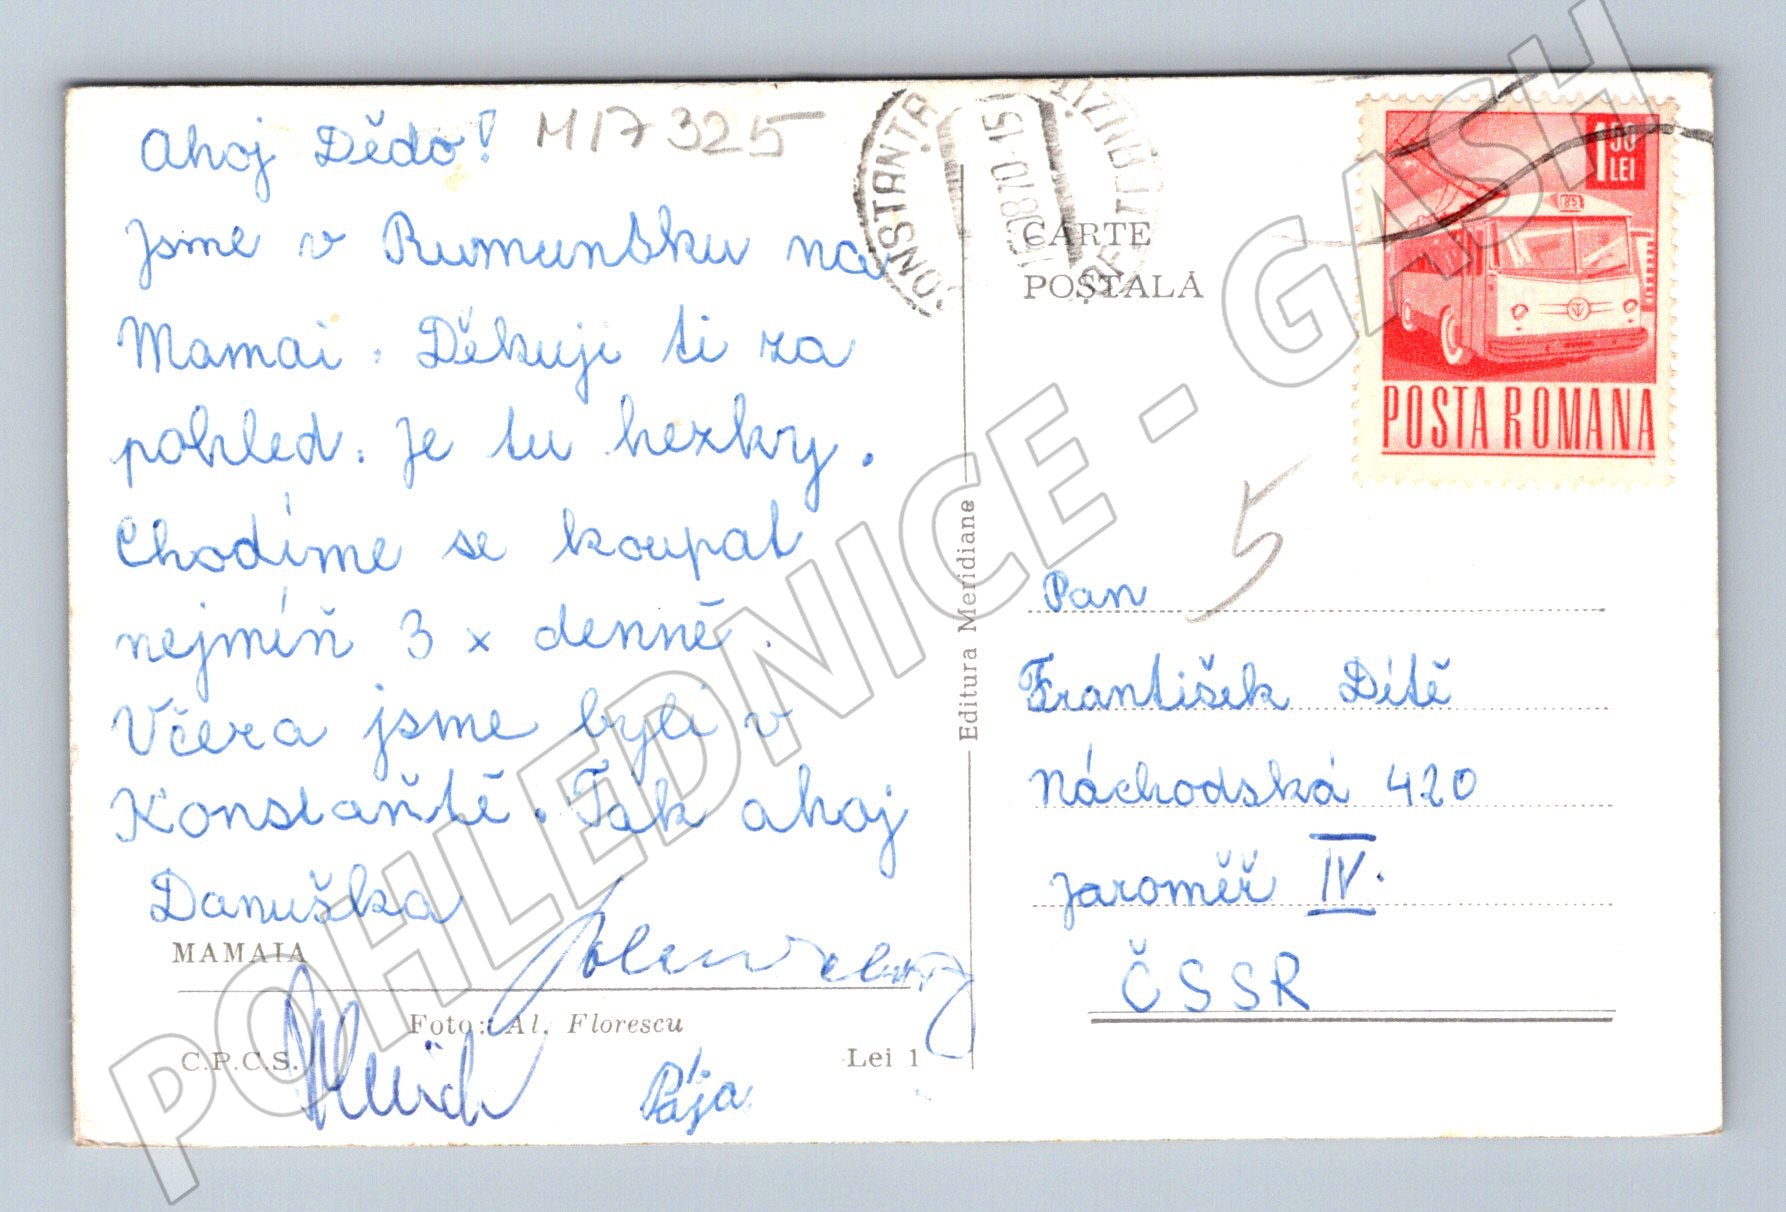 Ahoj Dědo!
M17325
Jsme v Rumunsku na
Mamai. Děkuji ti za
pohled. Je tu hezky.
Chodíme se koupat
nejmíň 3 x denně.
Včera jsme byli v
Konstaňtě. Tak ahoj
Danuška
MAMAIA
Foto: Al. Florescu
C.P.C.S.
Lei 1
Pája
Editura Meridiane
CONSTANTA
870-15
CARTE
POSTALĂ
1 50
LEI
85
POSTA ROMANA
5
Pan
František Dítě
Náchodská 420
Jaroměř IV.
ČSSR
POHLEDNICE - GASH